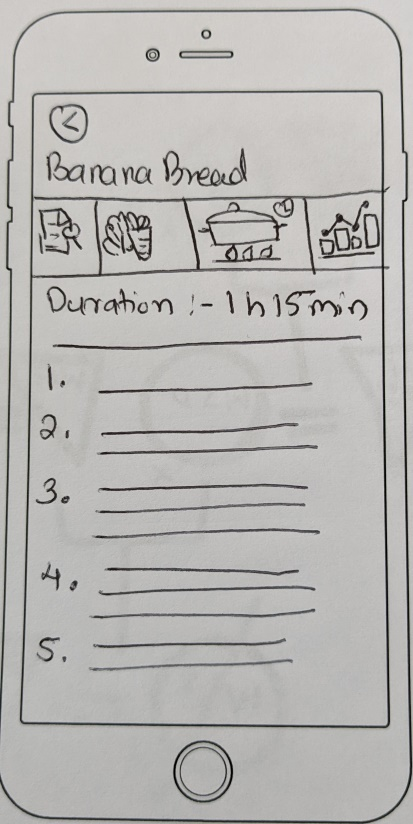 Banana Bread
Duration :- 1h 15min
1.
2.
3.
4.
5.